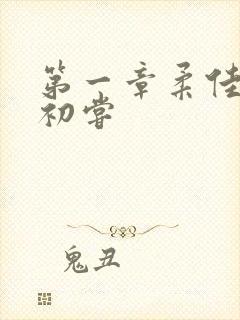 第一章柔佳
初尝
鬼丑